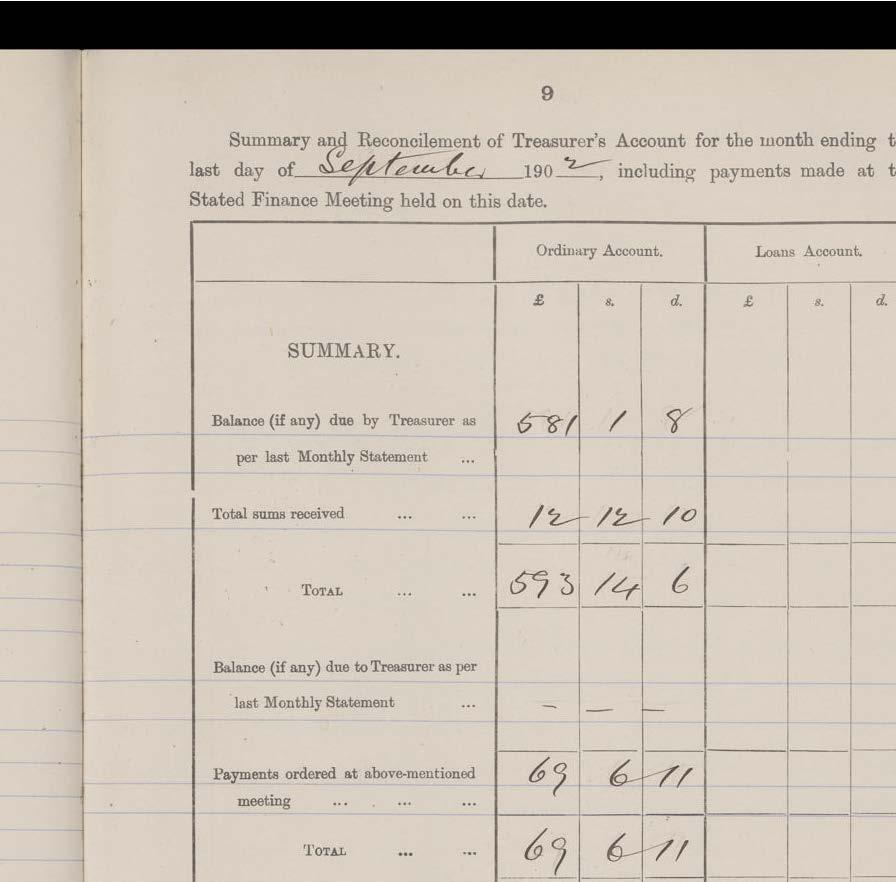 9
Summary and Reconcilement of Treasurer's Account for the month ending t
last day of September 1902, including payments made at t
Stated Finance Meeting held on this date.
Ordinary Account. Loans Account.
£ s. d. £ s. d.
SUMMARY.
Balance (if any) due by Treasurer as 581 1 8
per last Monthly Statement ...
Total sums received ... ... 12 12 10
TOTAL ... ... 593 14 6
Balance (if any) due to Treasurer as per
last Monthly Statement ... — — —
Payments ordered at above-mentioned 69 6 11
meeting ... ... ...
TOTAL ... ... 69 6 11